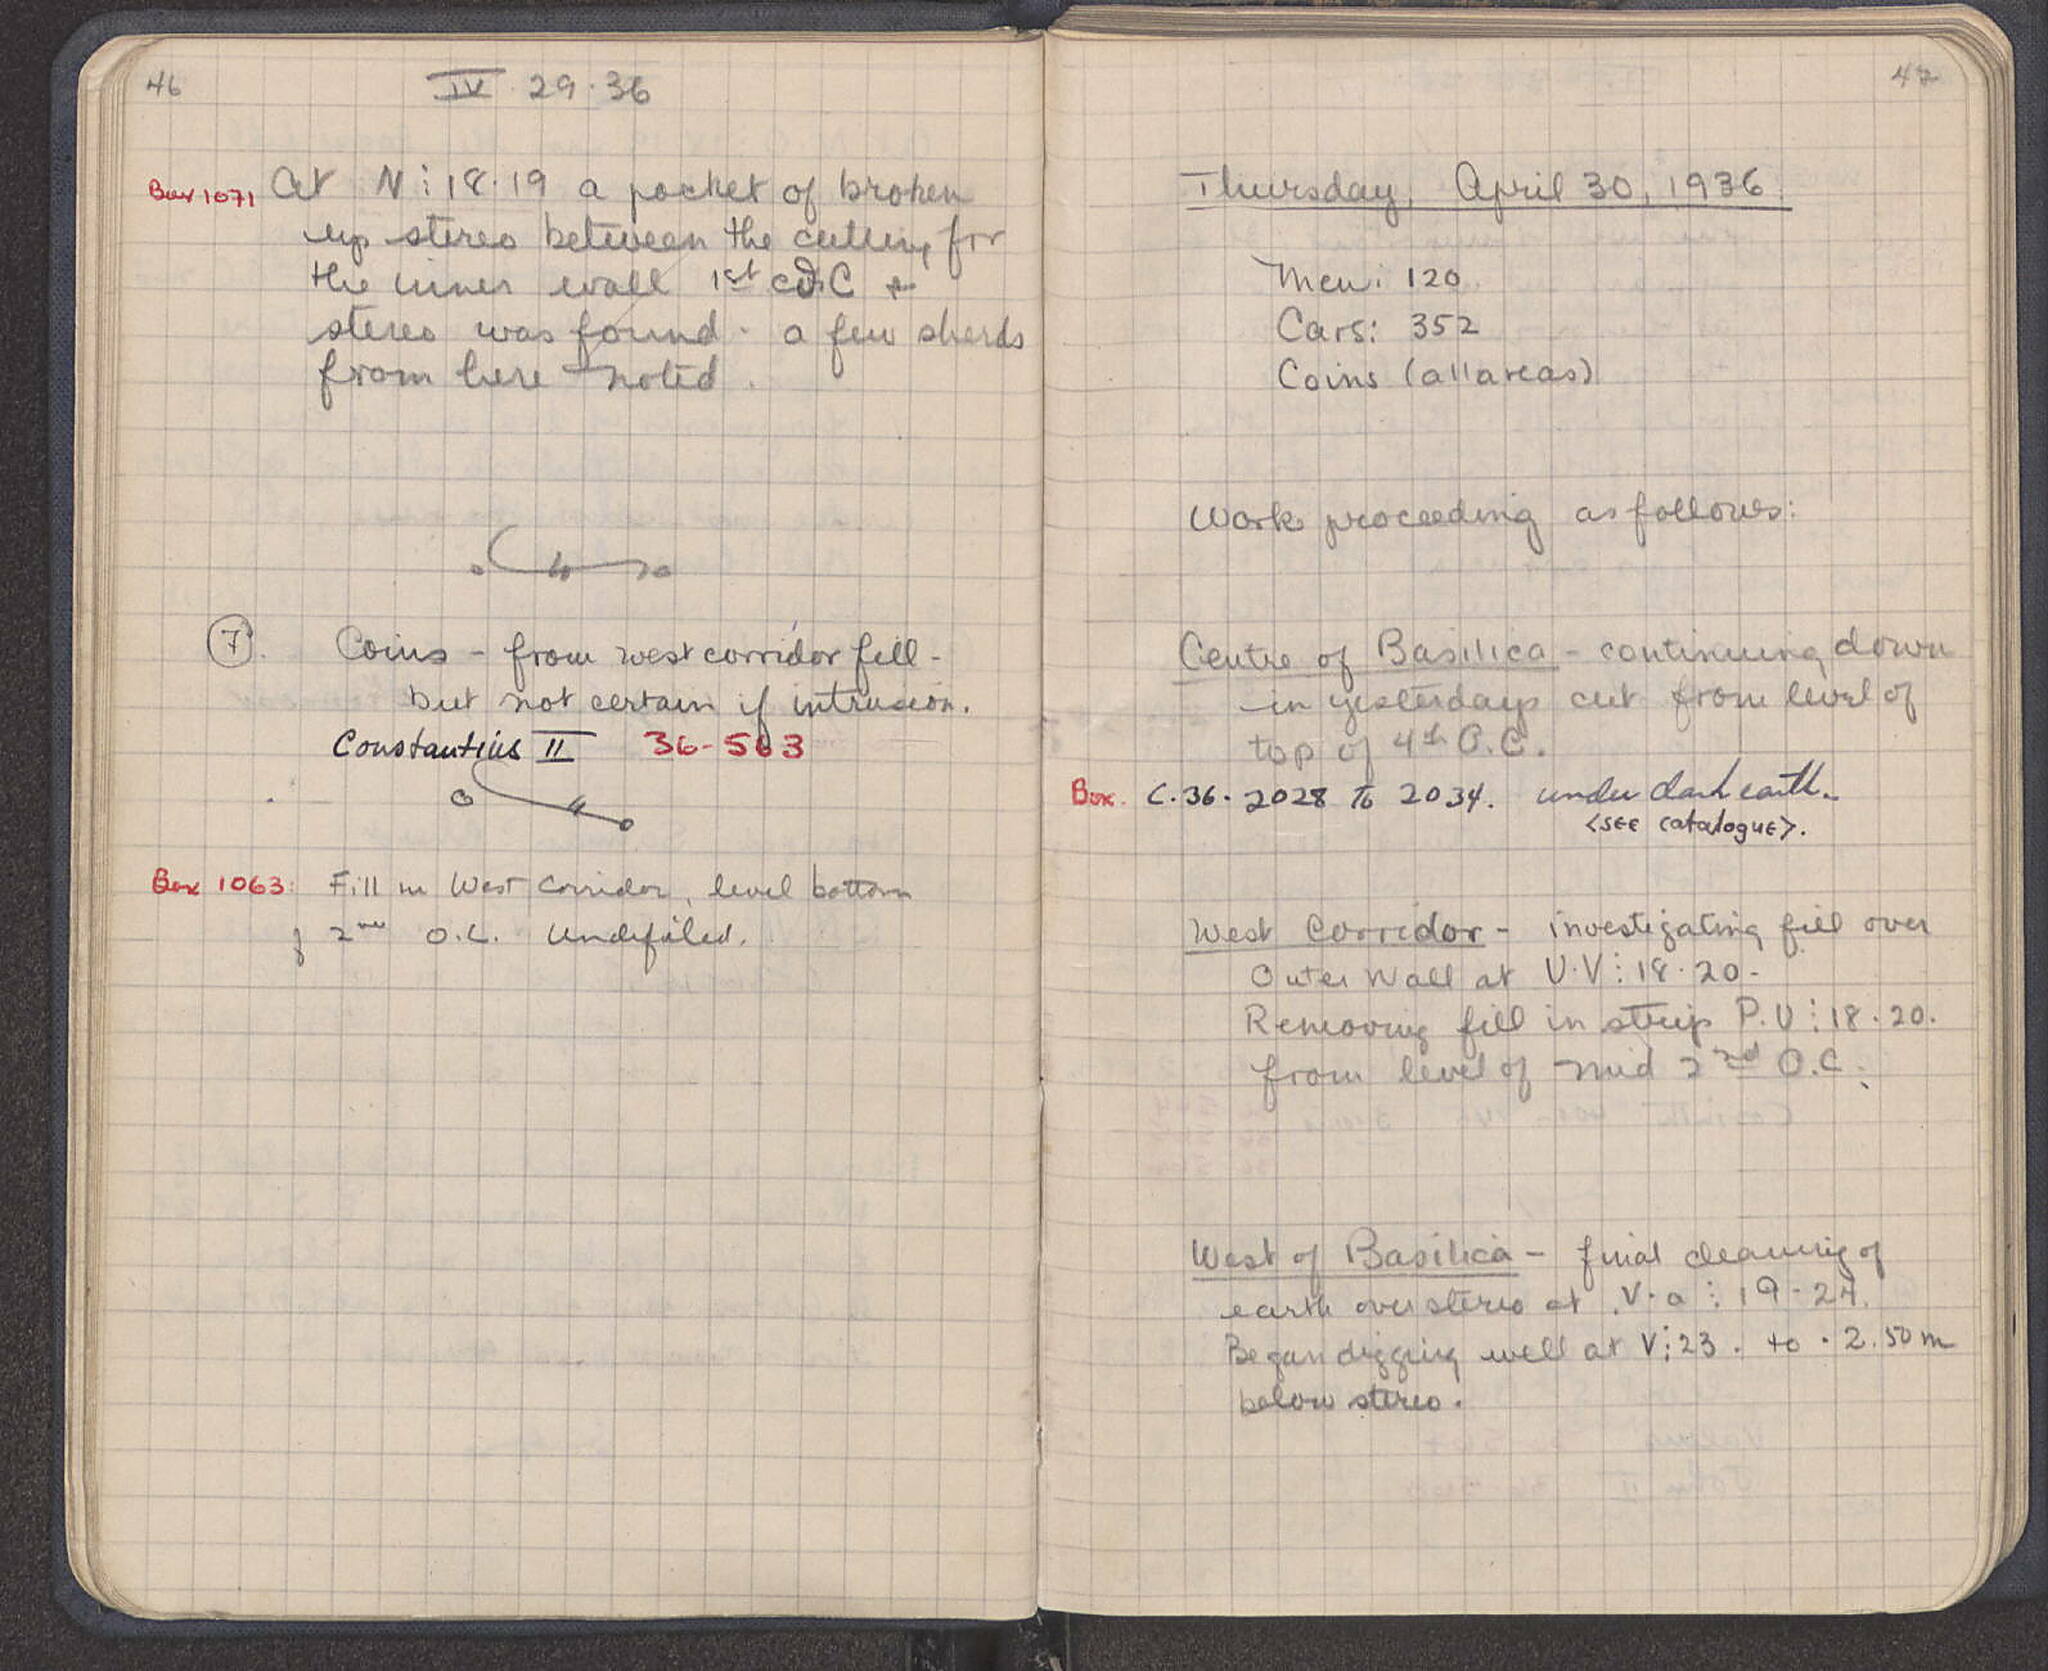 46
IV 29.36
Box 1071 At N:18.19 a pocket of broken
up stereo between the cutting for
the inner wall 1st O.C +
stereo was found. a few sherds
from here noted.
7. Coins - from west corridor fill -
but not certain if intrusion.
Constantius II 36-563
Box 1063: Fill in West Corridor, level bottom
of 2nd O.C. Undefiled.
47
Thursday, April 30, 1936.
Men: 120
Cars: 352
Coins (all areas)
Work proceeding as follows:
Centre of Basilica - continuing down
in yesterdays cut from level of
top of 4th O.C.
Box. C.36.2028 To 2034. under dark earth.
<SEE catalogue>.
West Corridor - investigating fill over
Outer Wall at U.V:18.20-
Removing fill in strip P.U:18.20.
from level of mid 2nd O.C.
West of Basilica - final cleaning of
earth over stereo at V.a:19-24.
Began digging well at V:23. to .2.50m
below stereo.